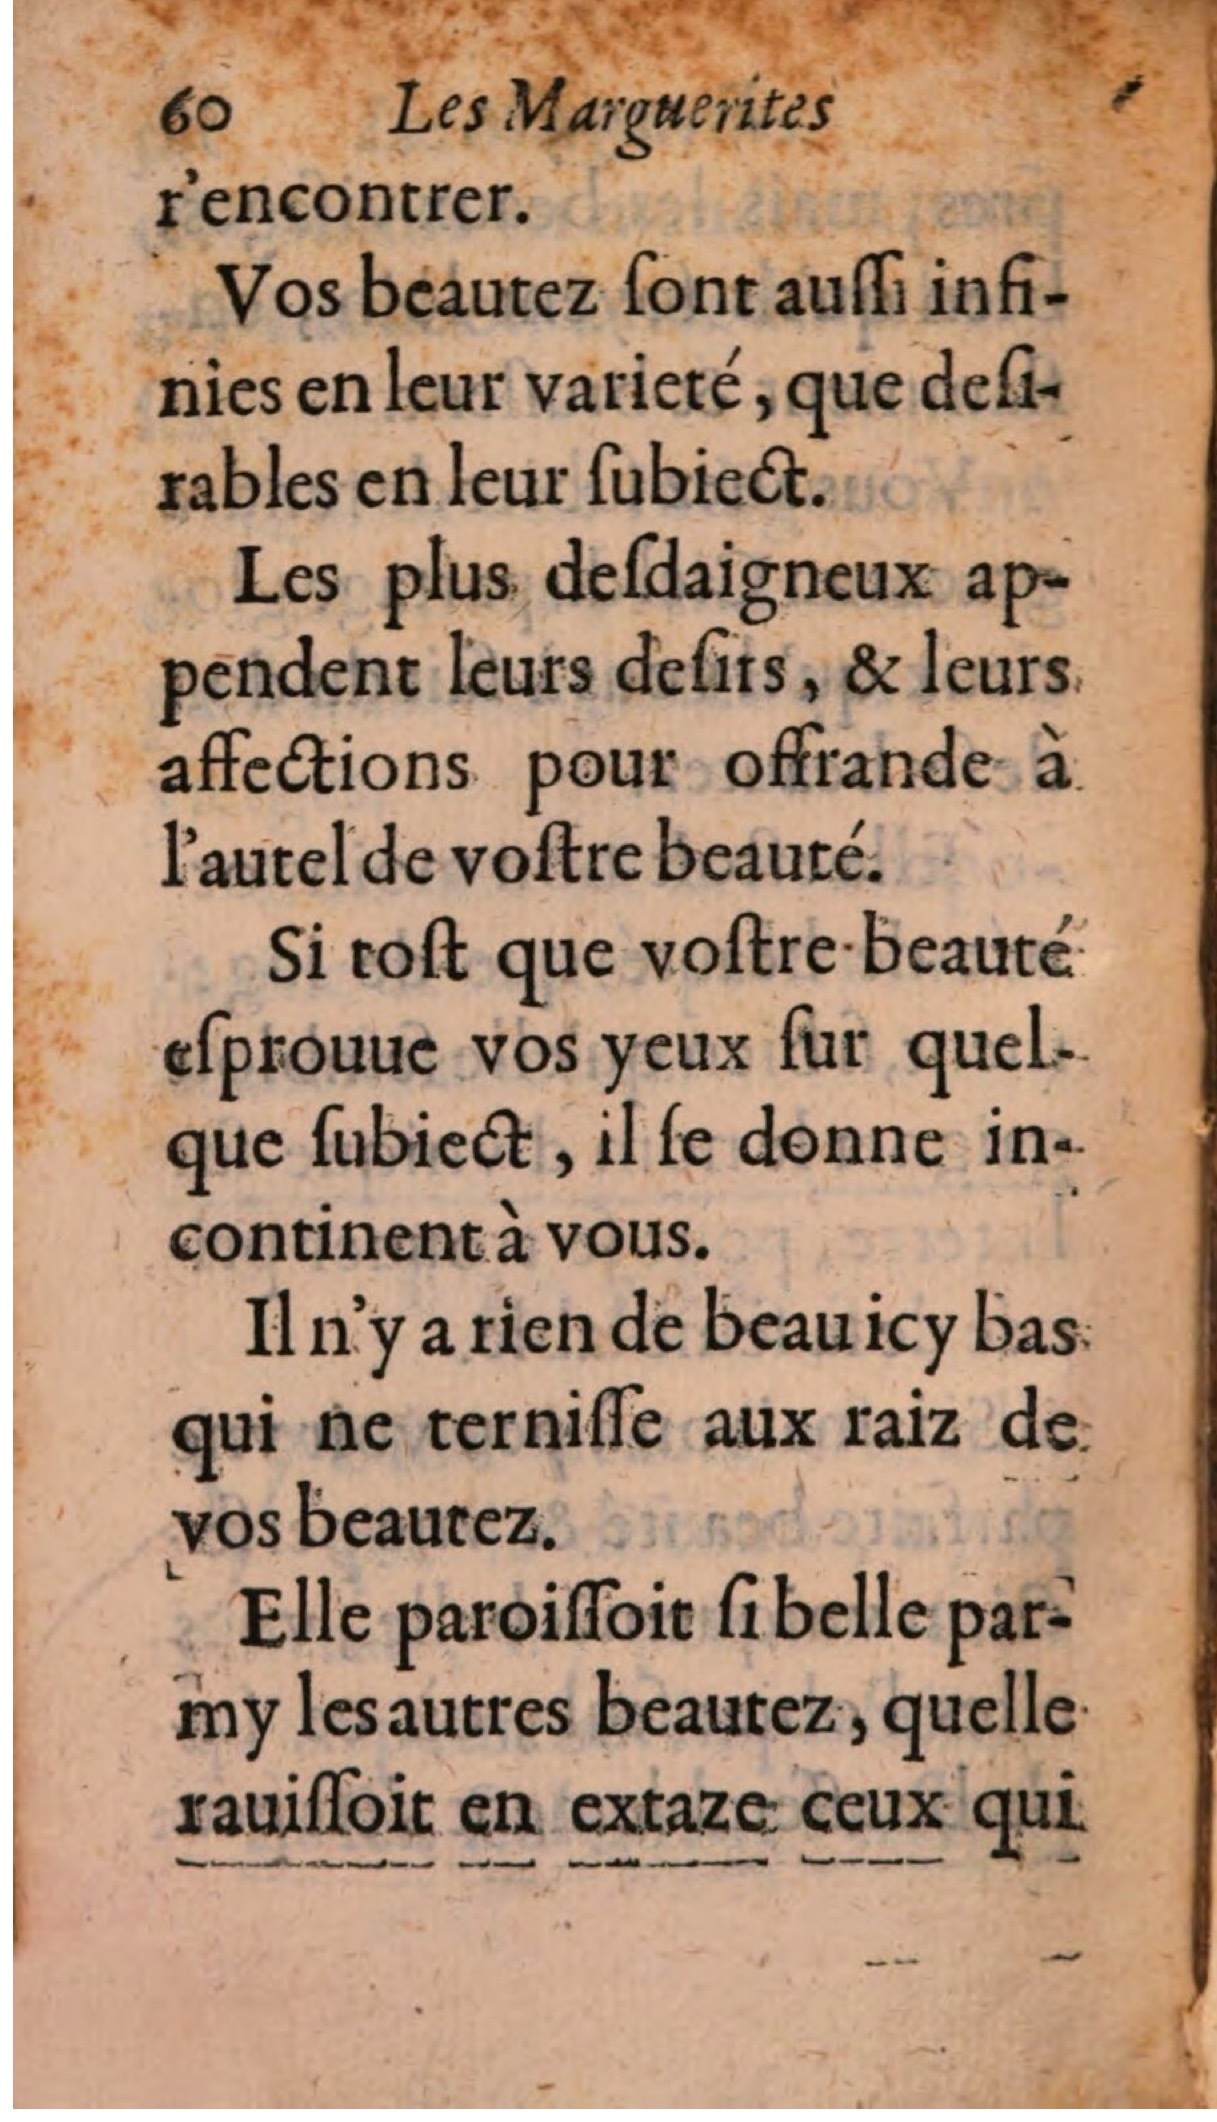 60 Les Marguerites
r'encontrer.
Vos beautez ſont auſſi infi-
nies en leur varieté, que deſi-
rables en leur ſubiect.
Les plus deſdaigneux ap-
pendent leurs deſirs, & leurs
affections pour offrande à
l'autel de voſtre beauté.
Si toſt que voſtre beauté
eſprouue vos yeux ſur quel-
que ſubiect, il ſe donne in-
continent à vous.
Il n'y a rien de beau icy bas
qui ne terniſſe aux raiz de
vos beautez.
Elle paroiſſoit ſi belle par-
my les autres beautez, quelle
rauiſſoit en extaze ceux qui